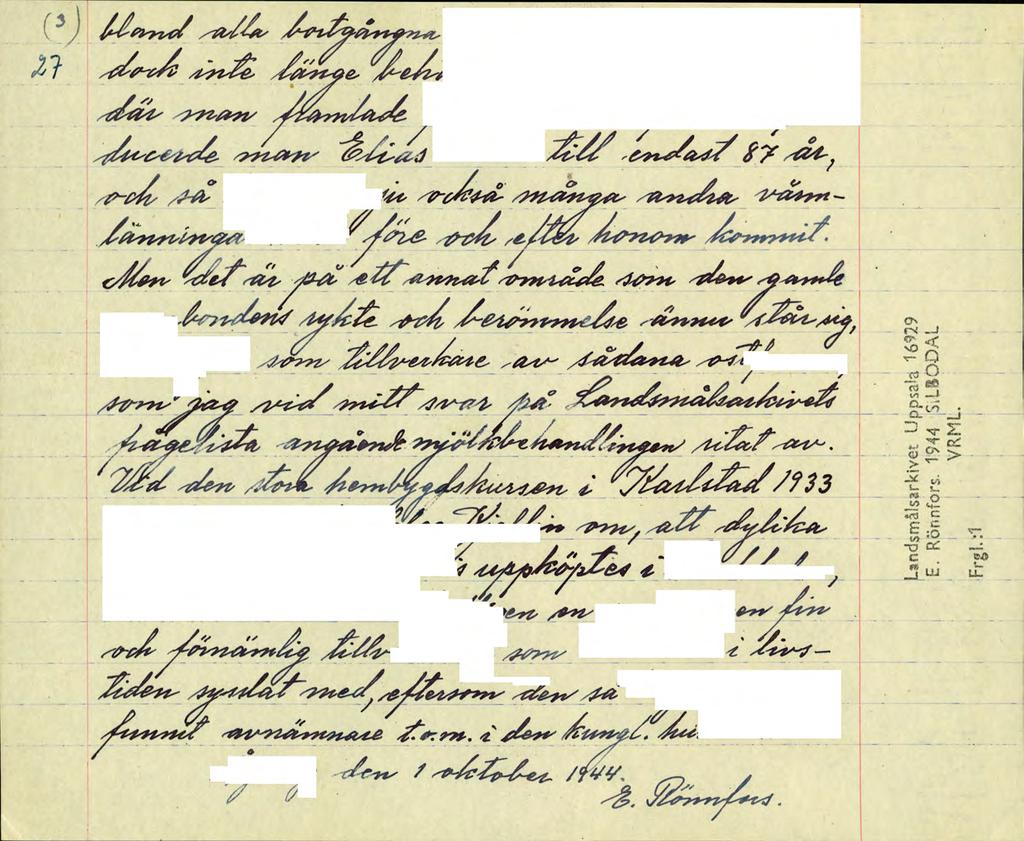 (3)
27
bland alla bortgångna
dock inte länge
där man framlade
ducerde man Elias till endast 87 år,
och så ju också många andra värm-
länningar före och efter honom kommit.
Men det är på ett annat område som den gamle
bondens rykte och berömmelse ännu står sig,
som tillverkare av sådana
som jag vid mitt svar på Landsmålsarkivets
frågelista angående mjölkbehandlingen ritat av.
Vid den stora hembygdskursen i Karlstad 1933
om, att dylika
uppköptes i
en fin
och förnämlig som i livs-
tiden sysslat med, eftersom den
funnit avnämnare t.o.m. i den kungl.
den 1 oktober 1944.
E. Rönnfors.
Landsmålsarkivet Uppsala 16929
E. Rönnfors. 1944 S.LBODAL
VRML.
Frgl.:1